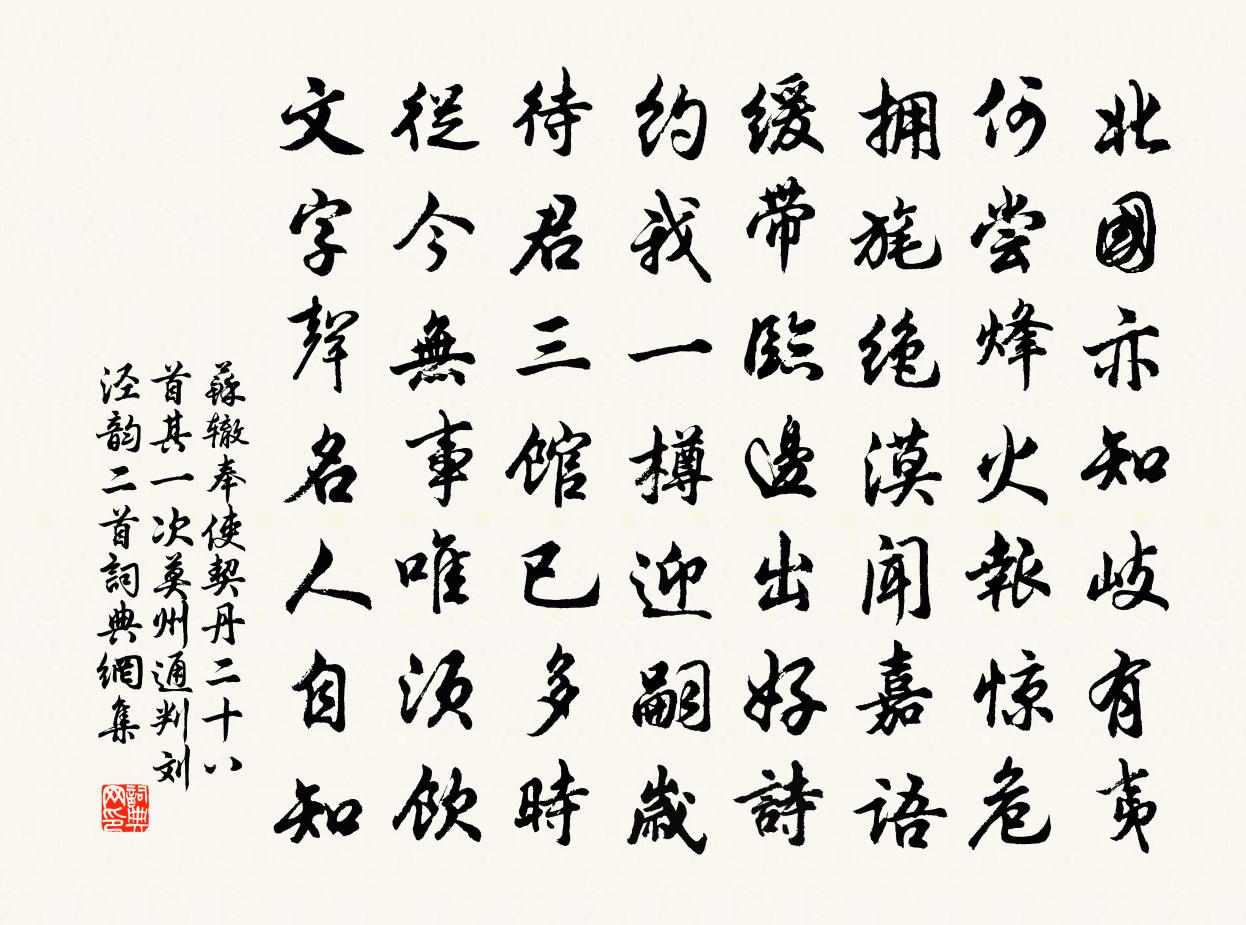 北國亦知岐有夷
何尝烽火報惊危
拥旄绝漠闻嘉语
缓带臨邊出好詩
约我一樽迎嗣歲
待君三馆已多時
從今無事唯须飲
文字聲名人自知
蘇辙奉使契丹二十八
首其一次莫州通判刘
泾韵二首詞典網集
詞典
网印